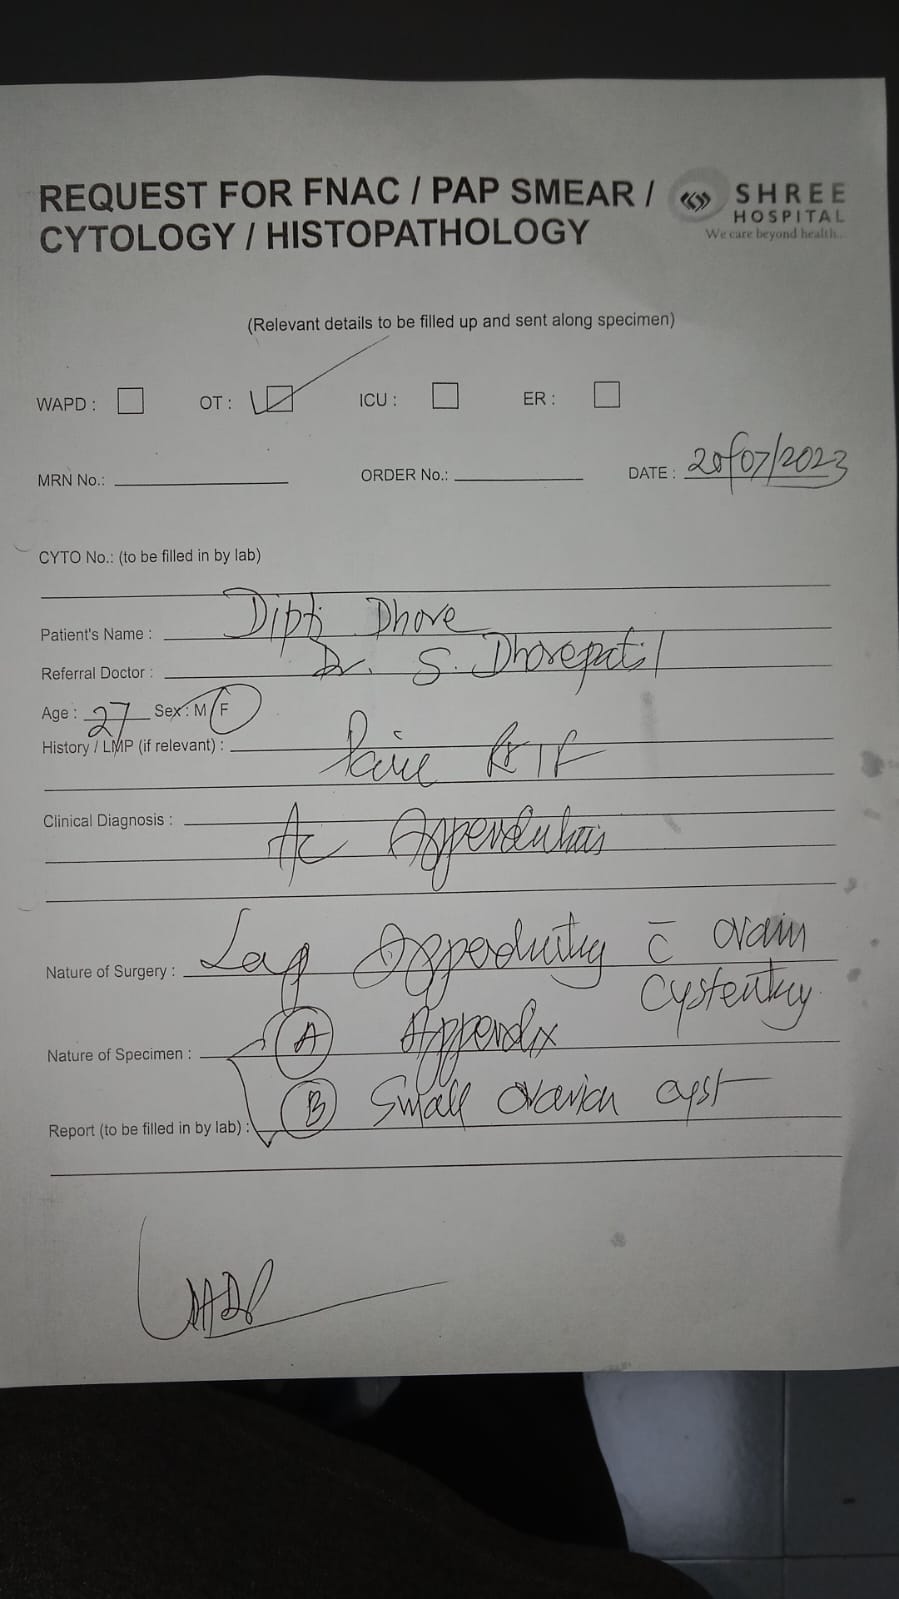 REQUEST FOR FNAC / PAP SMEAR /
CYTOLOGY / HISTOPATHOLOGY
SHREE
HOSPITAL
We care beyond health...
(Relevant details to be filled up and sent along specimen)
WAPD : OT : ICU : ER :
MRN No.: ORDER No.: DATE : 20/07/2023
CYTO No.: (to be filled in by lab)
Patient's Name : Dipti Dhore
Referral Doctor : Dr. S. Dhorepatil
Age : 27 Sex : M / F
History / LMP (if relevant) :
Clinical Diagnosis : Ac Appendicitis
Nature of Surgery : Lap c̄
Nature of Specimen : A Appendix
B Small ovarian cyst
Report (to be filled in by lab) :